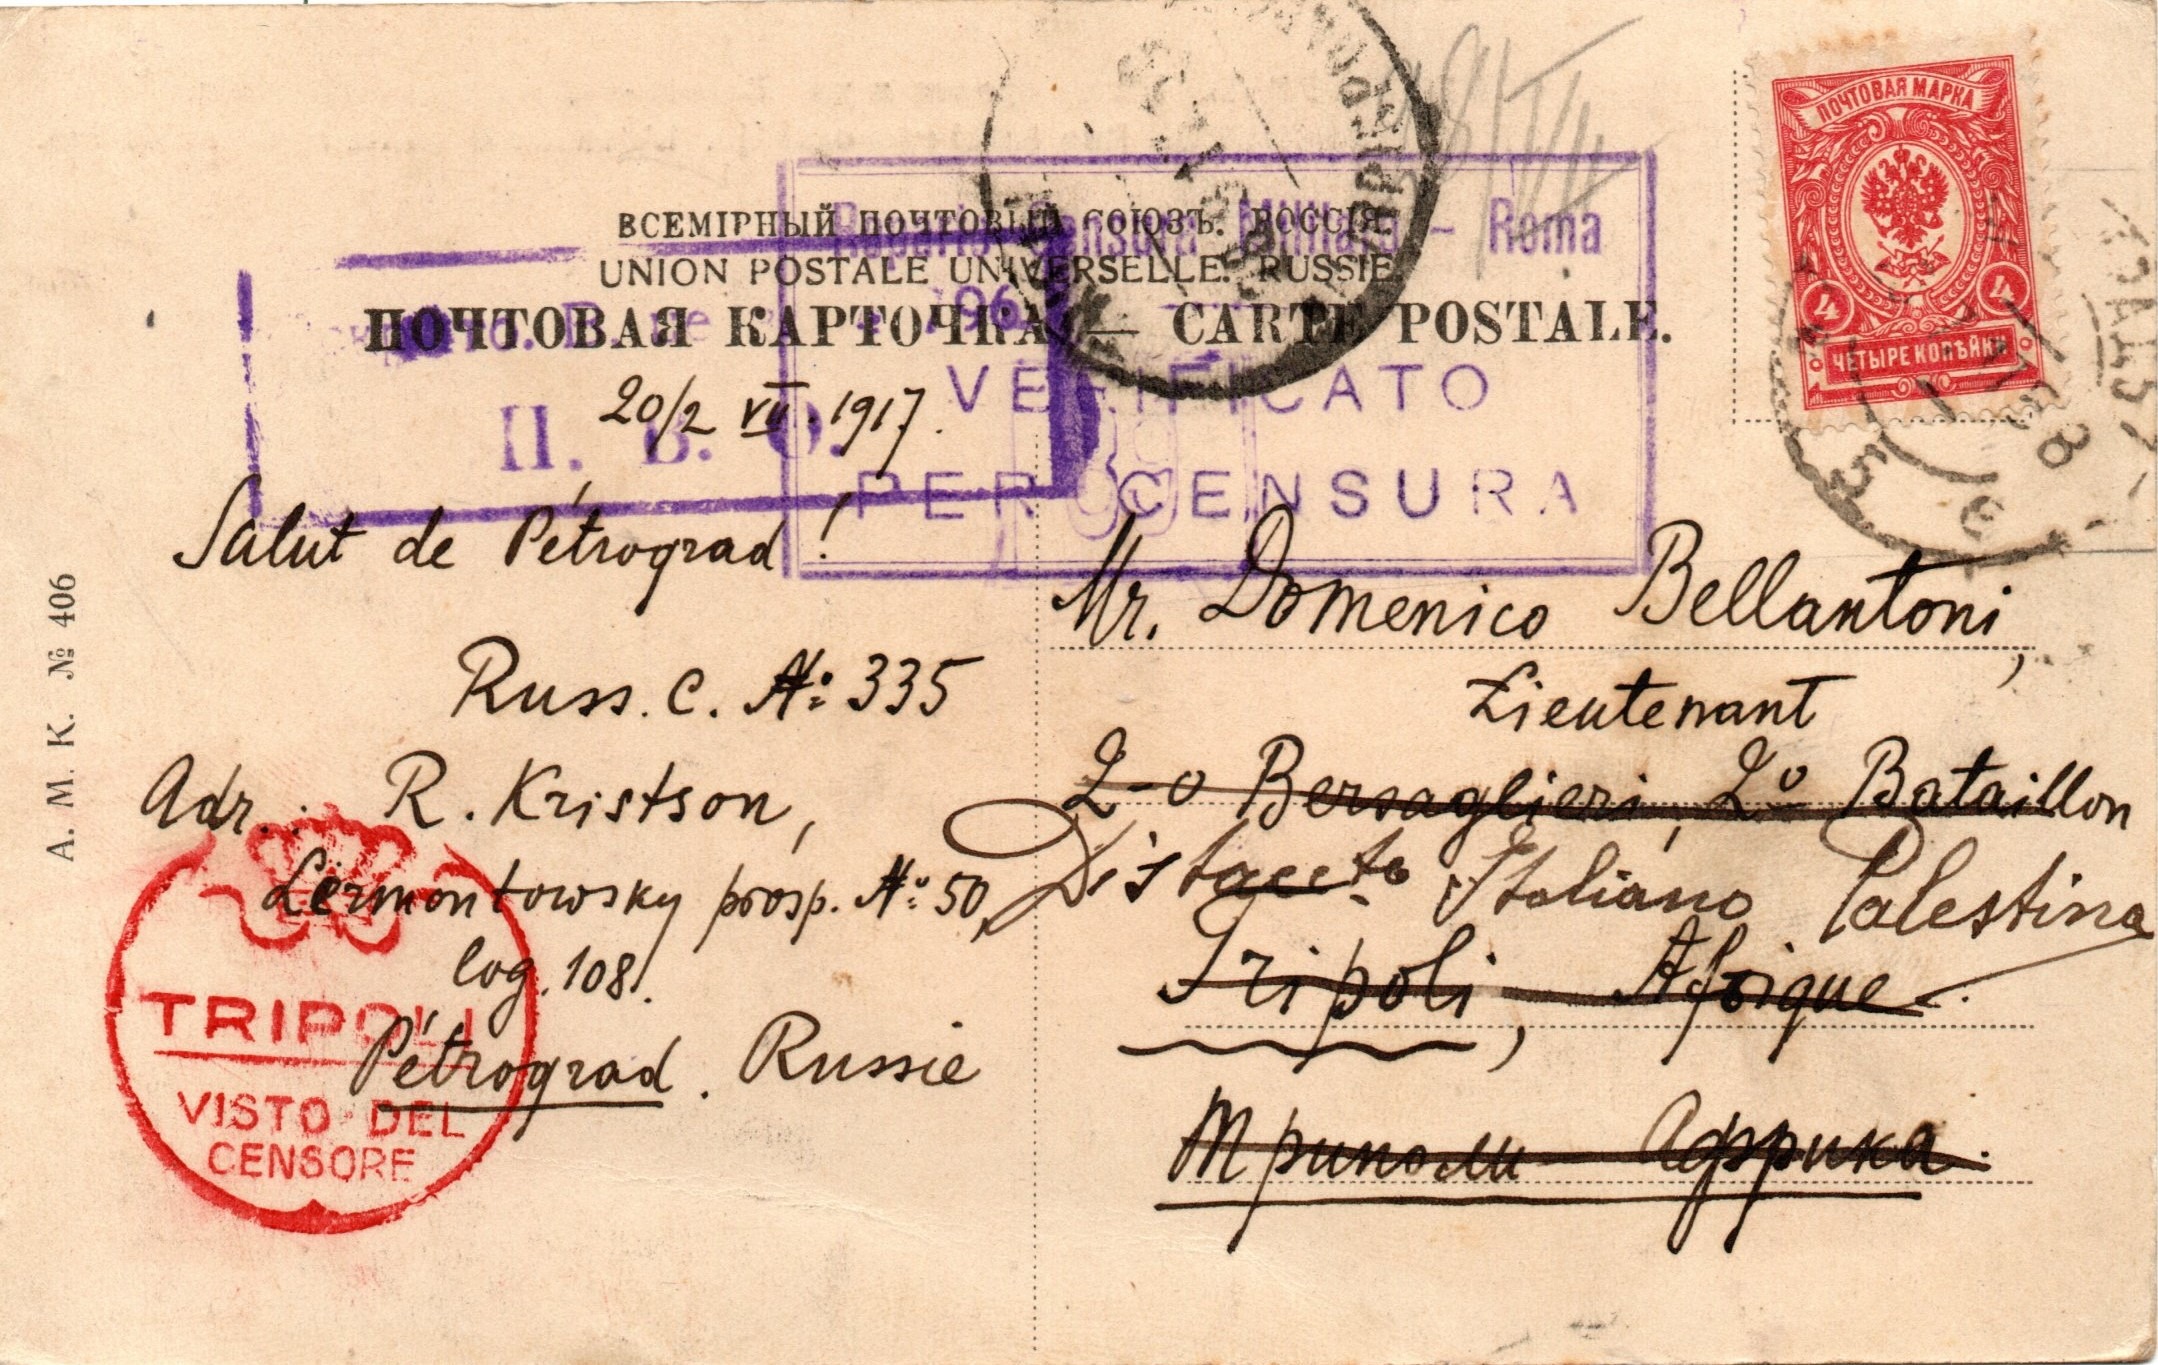 ПОЧТОВАЯ МАРКА
4 4
ЧЕТЫРЕ КОПѢЙКИ
ВСЕМІРНЫЙ ПОЧТОВЫЙ СОЮЗЪ. РОССІЯ.
UNION POSTALE UNIVERSELLE. RUSSIE.
ПОЧТОВАЯ КАРТОЧКА — CARTE POSTALE.
Censura Militare - Roma
VERIFICATO
PER CENSURA
П. В. О.
20/2 VII. 1917.
Salut de Pétrograd!
Russ. C. № 335
Adr.: R. Kristson,
Lermontowsky prosp. № 50,
log. 108.
Pétrograd. Russie
TRIPOLI
VISTO DEL
CENSORE
A. M. K. № 406
Mr. Domenico Bellantoni,
Lieutenant
2-o Bersaglieri, 2o Bataillon
Distaccto Italiano Palestina
Tripoli, Afrique.
Триполи Африка.